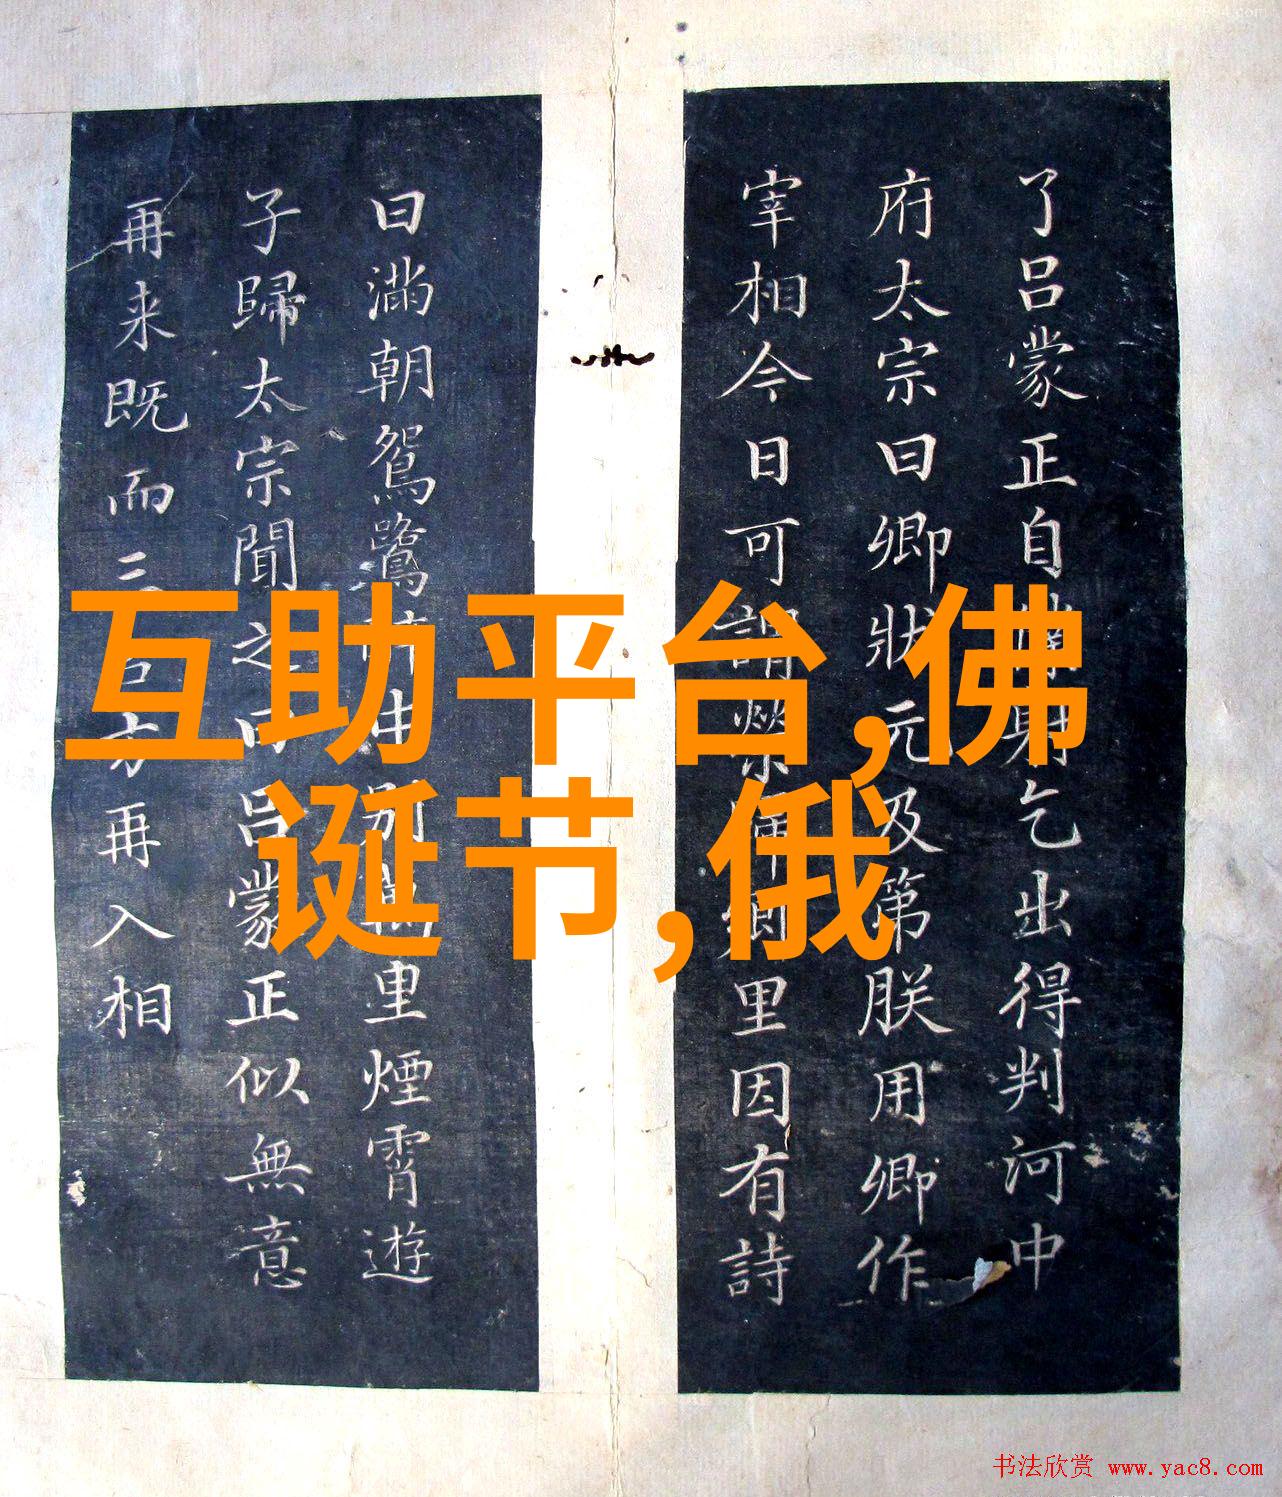 了吕蒙正自
身乞出得判河中
府太宗曰卿狀元及第朕用卿作
宰相今日可謂榮
里因有詩
曰滿朝鴛鷺
里煙霄遊
子歸太宗聞之
吕蒙正似無意
再来既而三
再入相
互助平台,佛
诞节,俄
书法欣赏 www.yac8.com